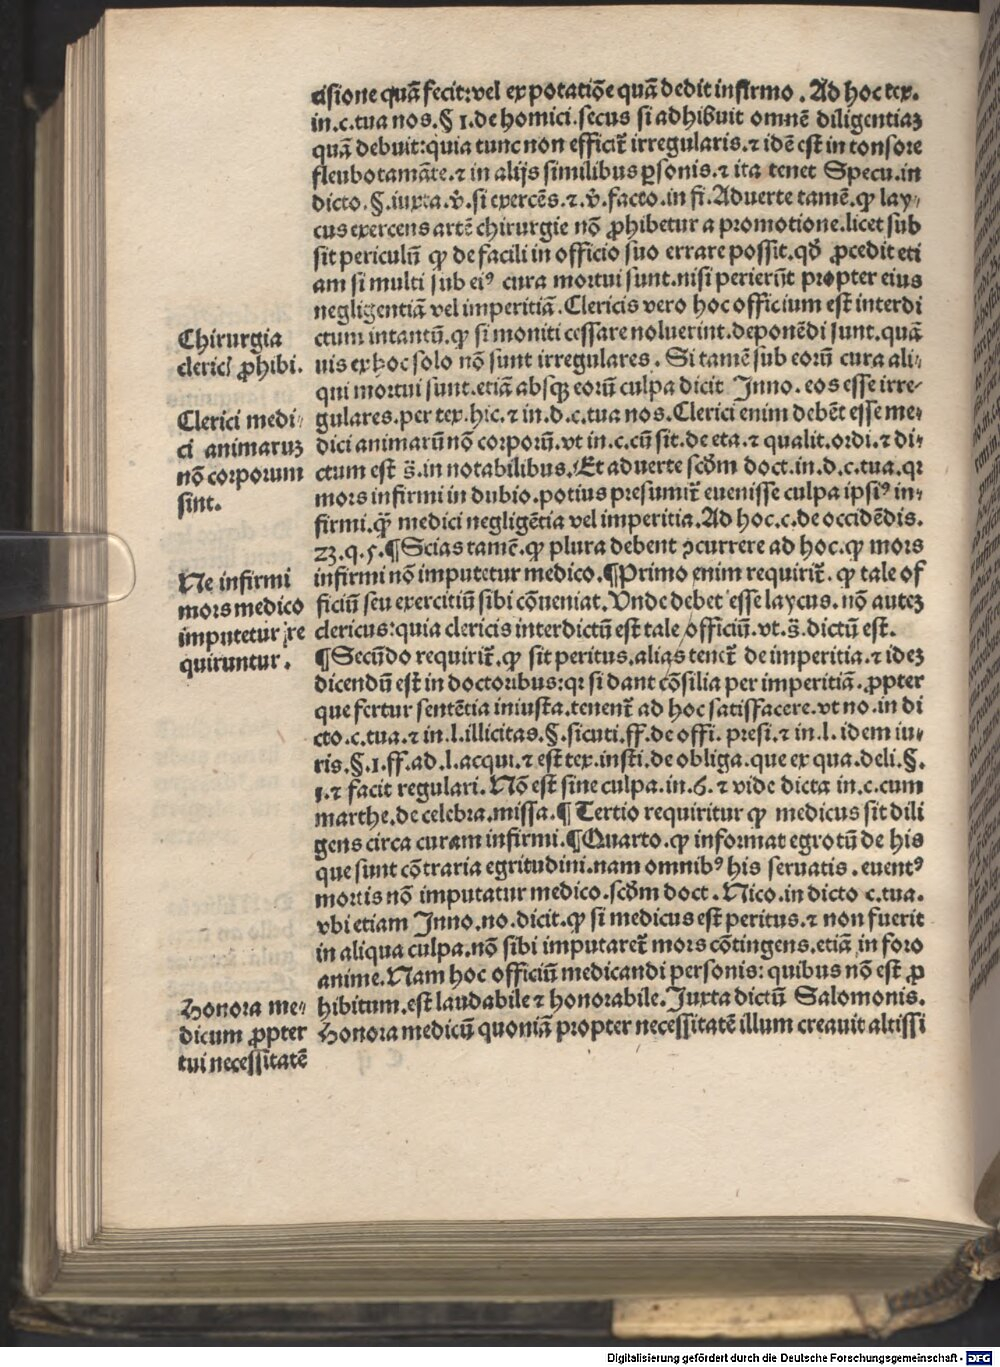 cisione quā fecit: vel ex potatiõe quā dedit infirmo. Ad hoc tex.
in.c.tua nos.§ 1.de homici.secus si adhibuit omnē diligentiaꝫ
quā debuit:quia tunc non efficit᷑ irregularis.⁊ idē est in tonsore
fleubotamāte.⁊ in alijs similibus ꝑsonis.⁊ ita tenet Specu.in
dicto.§.iuxta.v̉.si exercēs.⁊.v̉.facto.in fi.Aduerte tamē.ꝙ lay⸗
cus exercens artē chirurgie nõ ꝓhibetur a promotione.licet sub
sit periculū ꝙ de facili in officio suo errare possit.qđ ꝓcedit eti
am si multi sub eiꝰ cura mortui sunt.nisi perierūt propter eius
negligentiā vel imperitiā.Clericis vero hoc officium est interdi
Chirurgia
clerici ꝓhibi.
ctum intantū.ꝙ si moniti cessare noluerint.deponēdi sunt.quā
uis ex hoc solo nõ sunt irregulares. Si tamē sub eorū cura ali⸗
qui mortui sunt.etiā absqꝫ eorū culpa dicit Inno.eos esse irre⸗
Clerici medi⸗
ci animaruꝫ
nõ corporum
sint.
gulares.per tex.hic.⁊ in.d.c.tua nos.Clerici enim debēt esse me⸗
dici animarū nõ corporū.vt in.c.cū sit.de eta.⁊ qualit.ordi.⁊ di⸗
ctum est s̄.in notabilibus.Et aduerte scđm doct.in.d.c.tua.qꝛ
mors infirmi in dubio.potius presumit᷑ euenisse culpa ipsiꝰ in⸗
firmi.q̄ medici negligētia vel imperitia.Ad hoc.c.de occidēdis.
23.q.5.¶Scias tamē.ꝙ plura debent ꝯcurrere ad hoc.ꝙ mors
Ne infirmi
mors medico
imputetur re
quiruntur.
infirmi nõ imputetur medico.¶Primo enim requirit᷑. ꝙ tale of
ficiū seu exercitiū sibi cõueniat.Vnde debet esse laycus.nõ auteꝫ
clericus:quia clericis interdictū est tale officiū.vt.s̄.dictū est.
¶Secūdo requirit᷑.ꝙ sit peritus.alias tenet᷑ de imperitia.⁊ ideꝫ
dicendū est in doctoribus:qꝛ si dant cõsilia per imperitiā.ꝓpter
que fertur sentētia iniusta.tenent᷑ ad hoc satisfacere.vt no.in di
cto.c.tua.⁊ in.l.illicitas.§.sicuti.ff.de offi. presi.⁊ in.l.idem iu⸗
ris.§.1.ff.ad.l.acqui.⁊ est tex.insti.de obliga.que ex qua.deli.§.
1.⁊ facit regulari. Nõ est sine culpa.in.6.⁊ vide dicta in.c.cum
marthe.de celebra.missa.¶ Tertio requiritur ꝙ medicus sit dili
gens circa curam infirmi.¶Quarto.ꝙ informat egrotū de his
que sunt cõtraria egritudini.nam omnibꝰ his seruatis.euentꝰ
mortis nõ imputatur medico.scđm doct.Nico.in dicto c.tua.
vbi etiam Inno.no.dicit.ꝙ si medicus est peritus.⁊ non fuerit
in aliqua culpa.nõ sibi imputaret᷑ mors cõtingens.etiā in foro
anime.Nam hoc officiū medicandi personis: quibus nõ est ꝓ
Honora me⸗
dicum ꝓpter
tui necessitatē
hibitum.est laudabile ⁊ honorabile.Iuxta dictū Salomonis.
Honora medicū quoniā propter necessitatē illum creauit altissi
Digitalisierung gefördert durch die Deutsche Forschungsgemeinschaft - DFG